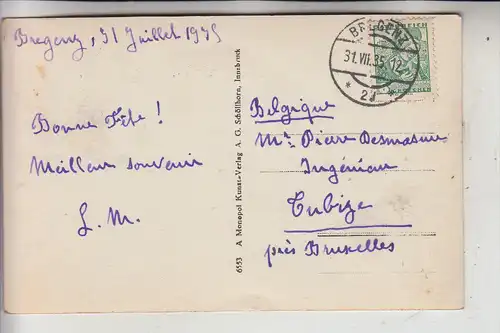 Bregenz, 31 Juillet 1935
Bonne Fête !
Meilleur souvenir
L. M.
6553 A Monopol Kunst-Verlag A. G. Schöllhorn, Innsbruck
BREGENZ
31.VII.35
* 2d *
Belgique
Mr. Pierre Desmasure
Ingénieur
Tubize
près Bruxelles